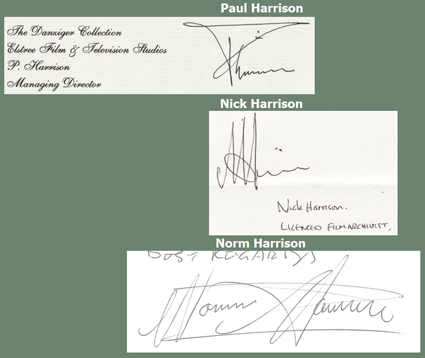 Paul Harrison
The Danziger Collection
Elstree Film & Television Studios
P. Harrison
Managing Director
Nick Harrison
Nick Harrison.
LICENCED FILM ARCHIVIST.
Norm Harrison
BEST REGARDS